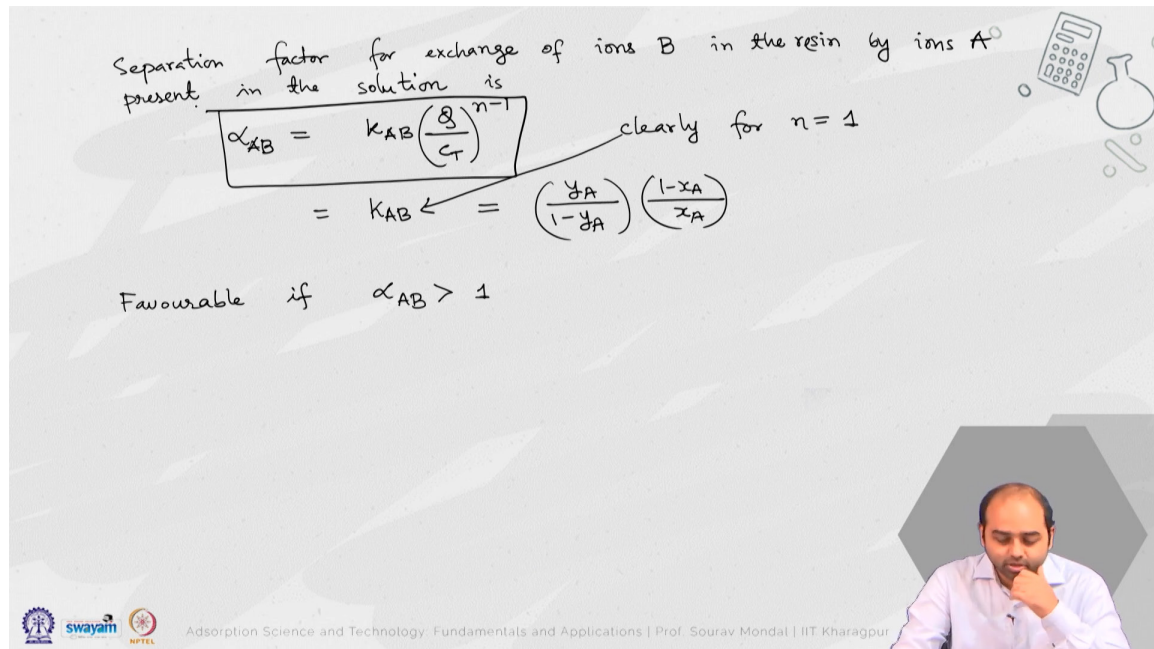 Separation factor for exchange of ions B in the resin by ions A
present in the solution is
α_AB = K_AB (Q/C_T)^(n-1)
clearly for n = 1
= K_AB = (y_A/(1-y_A)) ((1-x_A)/x_A)
Favourable if α_AB > 1
swayam
NPTEL
Adsorption Science and Technology: Fundamentals and Applications | Prof. Sourav Mondal | IIT Kharagpur